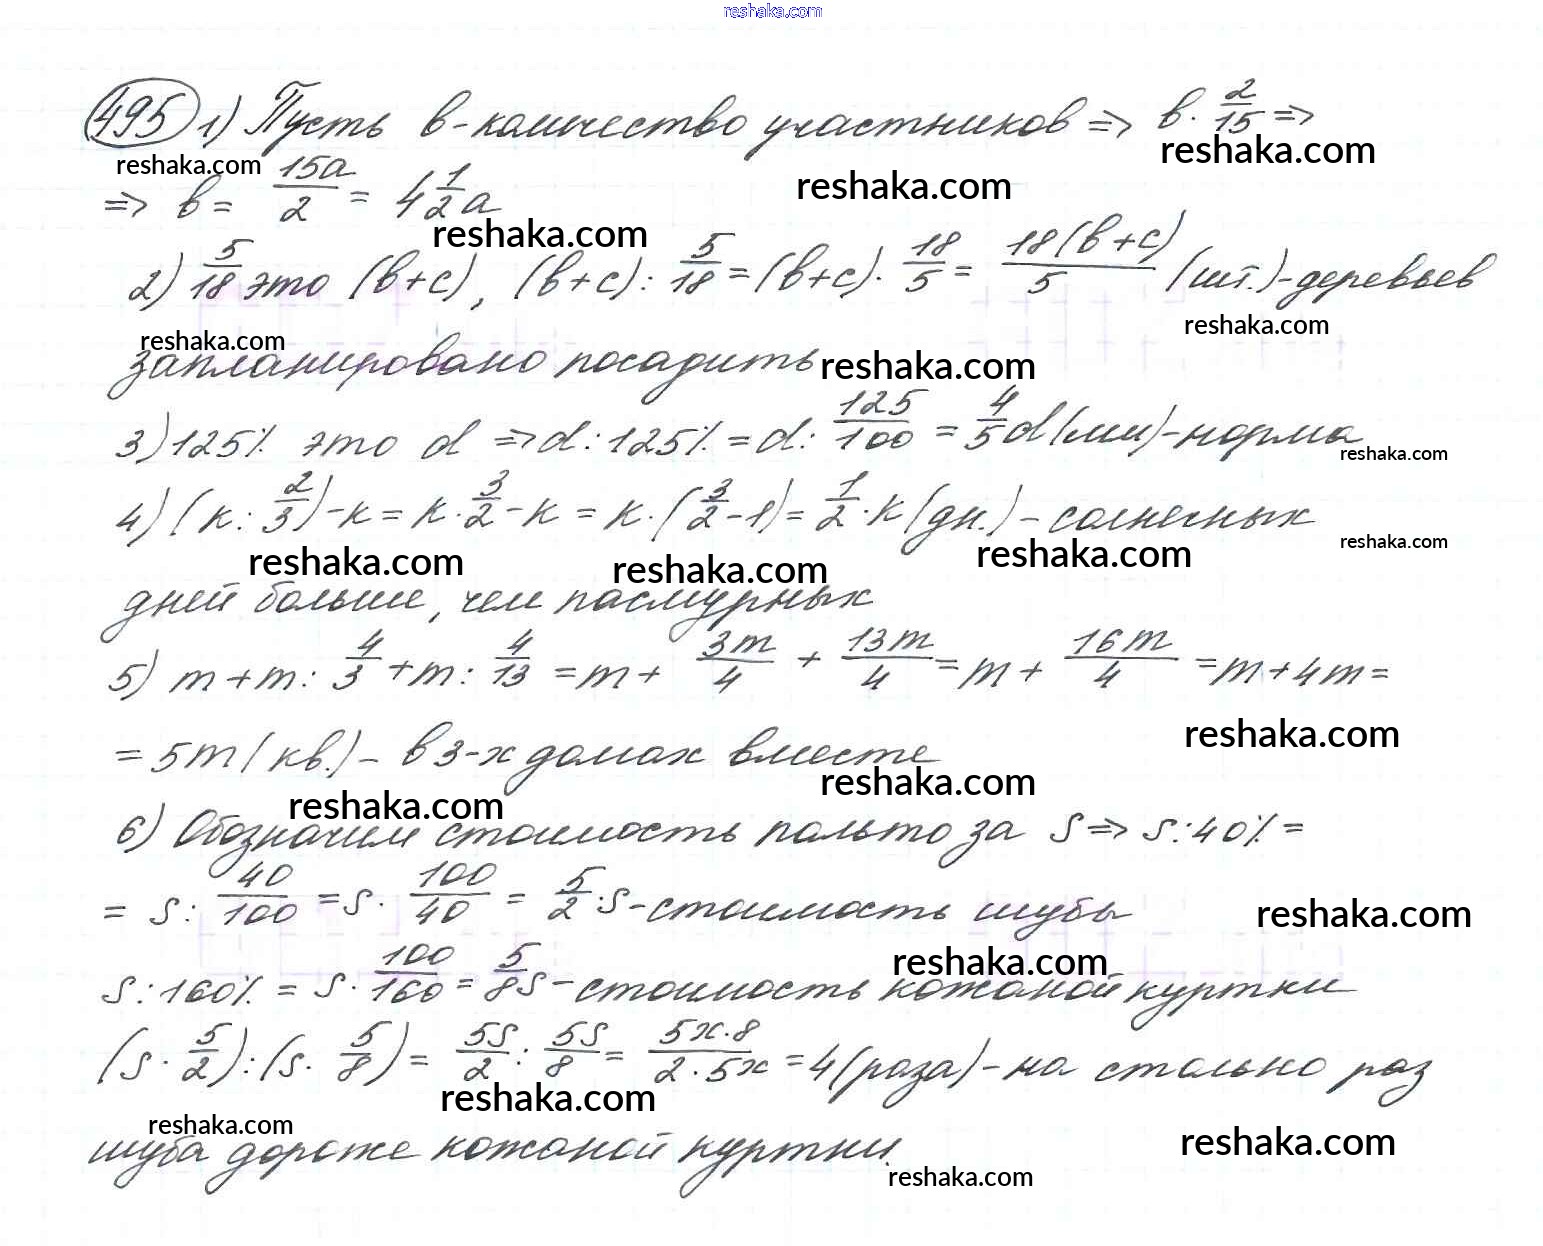 reshaka.com
495 1) Пусть в - количество участников => в · 2/15 =>
reshaka.com
reshaka.com
=> в = 15a/2 = 4 1/2 a
reshaka.com
reshaka.com
2) 5/18 это (в+с), (в+с) : 5/18 = (в+с) · 18/5 = 18(в+с)/5 (шт.) - деревьев
reshaka.com
reshaka.com
запланировано посадить
reshaka.com
3) 125% это d => d : 125% = d : 125/100 = 4/5 d (мм) - норма
reshaka.com
4) (к : 2/3) - к = к · 3/2 - к = к · (3/2 - 1) = 1/2 · к (дн.) - солнечных
reshaka.com
reshaka.com
reshaka.com
reshaka.com
дней больше, чем пасмурных
5) m + m : 4/3 + m : 4/13 = m + 3m/4 + 13m/4 = m + 16m/4 = m + 4m =
= 5m (кв.) - в 3-х домах вместе
reshaka.com
reshaka.com
reshaka.com
6) Обозначим стоимость пальто за S => S : 40% =
= S : 40/100 = S · 100/40 = 5/2 · S - стоимость шубы
reshaka.com
reshaka.com
S : 160% = S · 100/160 = 5/8 S - стоимость кожаной куртки
(S · 5/2) : (S · 5/8) = 5S/2 : 5S/8 = 5x·8/2·5x = 4 (раза) - на столько раз
reshaka.com
reshaka.com
шуба дороже кожаной куртки.
reshaka.com
reshaka.com